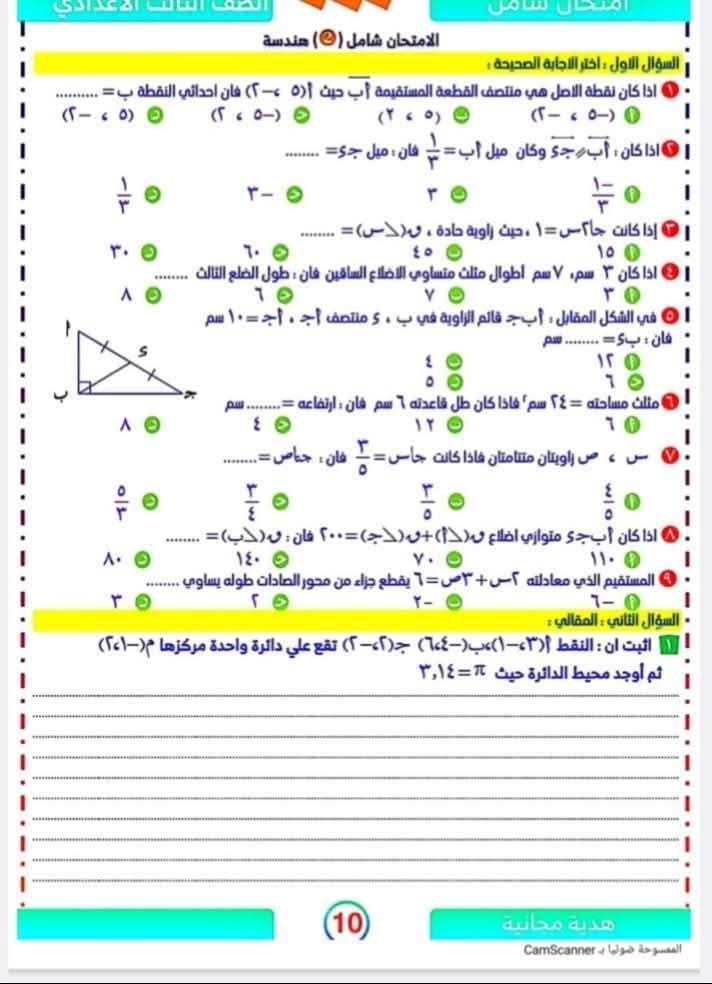 امتحان شامل
الصف الثالث الاعدادي
الامتحان شامل (2) هندسة
السؤال الاول : اختر الاجابة الصحيحة :
١ اذا كان نقطة الاصل هي منتصف القطعة المستقيمة أب حيث أ(٥ ، -٢) فان احداثي النقطة ب = ..........
أ (-٥ ، -٢) ب (٥ ، ٢) ج (-٥ ، ٢) د (٥ ، -٢)
٢ اذا كان : أب // جـ د وكان ميل أب = ١/٣ فان : ميل جـ د = ........
أ -١/٣ ب ٣ ج -٣ د ١/٣
٣ إذا كانت جا٢س = ١ ، حيث زاوية حادة ، ق(∠س) = ........
أ ١٥ ب ٤٥ ج ٦٠ د ٣٠
٤ اذا كان ٣ سم ، ٧ سم اطوال مثلث متساوي الاضلاع الساقين فان : طول الضلع الثالث ........
أ ٣ ب ٧ ج ٦ د ٨
٥ في الشكل المقابل : أب جـ قائم الزاوية في ب ، د منتصف أجـ ، أجـ = ١٠ سم
فان : ب د = ........ سم
أ ١٢ ب ٤
ج ٦ د ٥
أ
د
ب
جـ
٦ مثلث مساحته = ٢٤ سم٢ فاذا كان طل قاعدته ٦ سم فان : ارتفاعه = ........ سم
أ ٦ ب ١٢ ج ٤ د ٨
٧ س ، ص زاويتان متتامتان فاذا كانت جاس = ٣/٥ فان : جتاص = ........
أ ٤/٥ ب ٣/٥ ج ٣/٤ د ٥/٣
٨ اذا كان أب جـ د متوازي اضلاع ق(∠أ) + ق(∠جـ) = ٢٠٠ فان : ق(∠ب) = ........
أ ١١٠ ب ٧٠ ج ١٤٠ د ٨٠
٩ المستقيم الذي معادلته ٢س + ٣ص = ٦ يقطع جزء من محور الصادات طوله يساوي ........
أ -٦ ب -٢ ج ٢ د ٣
السؤال الثاني : المقالي :
١ اثبت ان : النقط أ(٣ ، -١) ، ب(-٤ ، ٦) جـ(٢ ، -٢) تقع علي دائرة واحدة مركزها م(-١ ، ٢)
ثم أوجد محيط الدائرة حيث π = ٣,١٤
10
هدية مجانية
الممسوحة ضوئيا بـ CamScanner